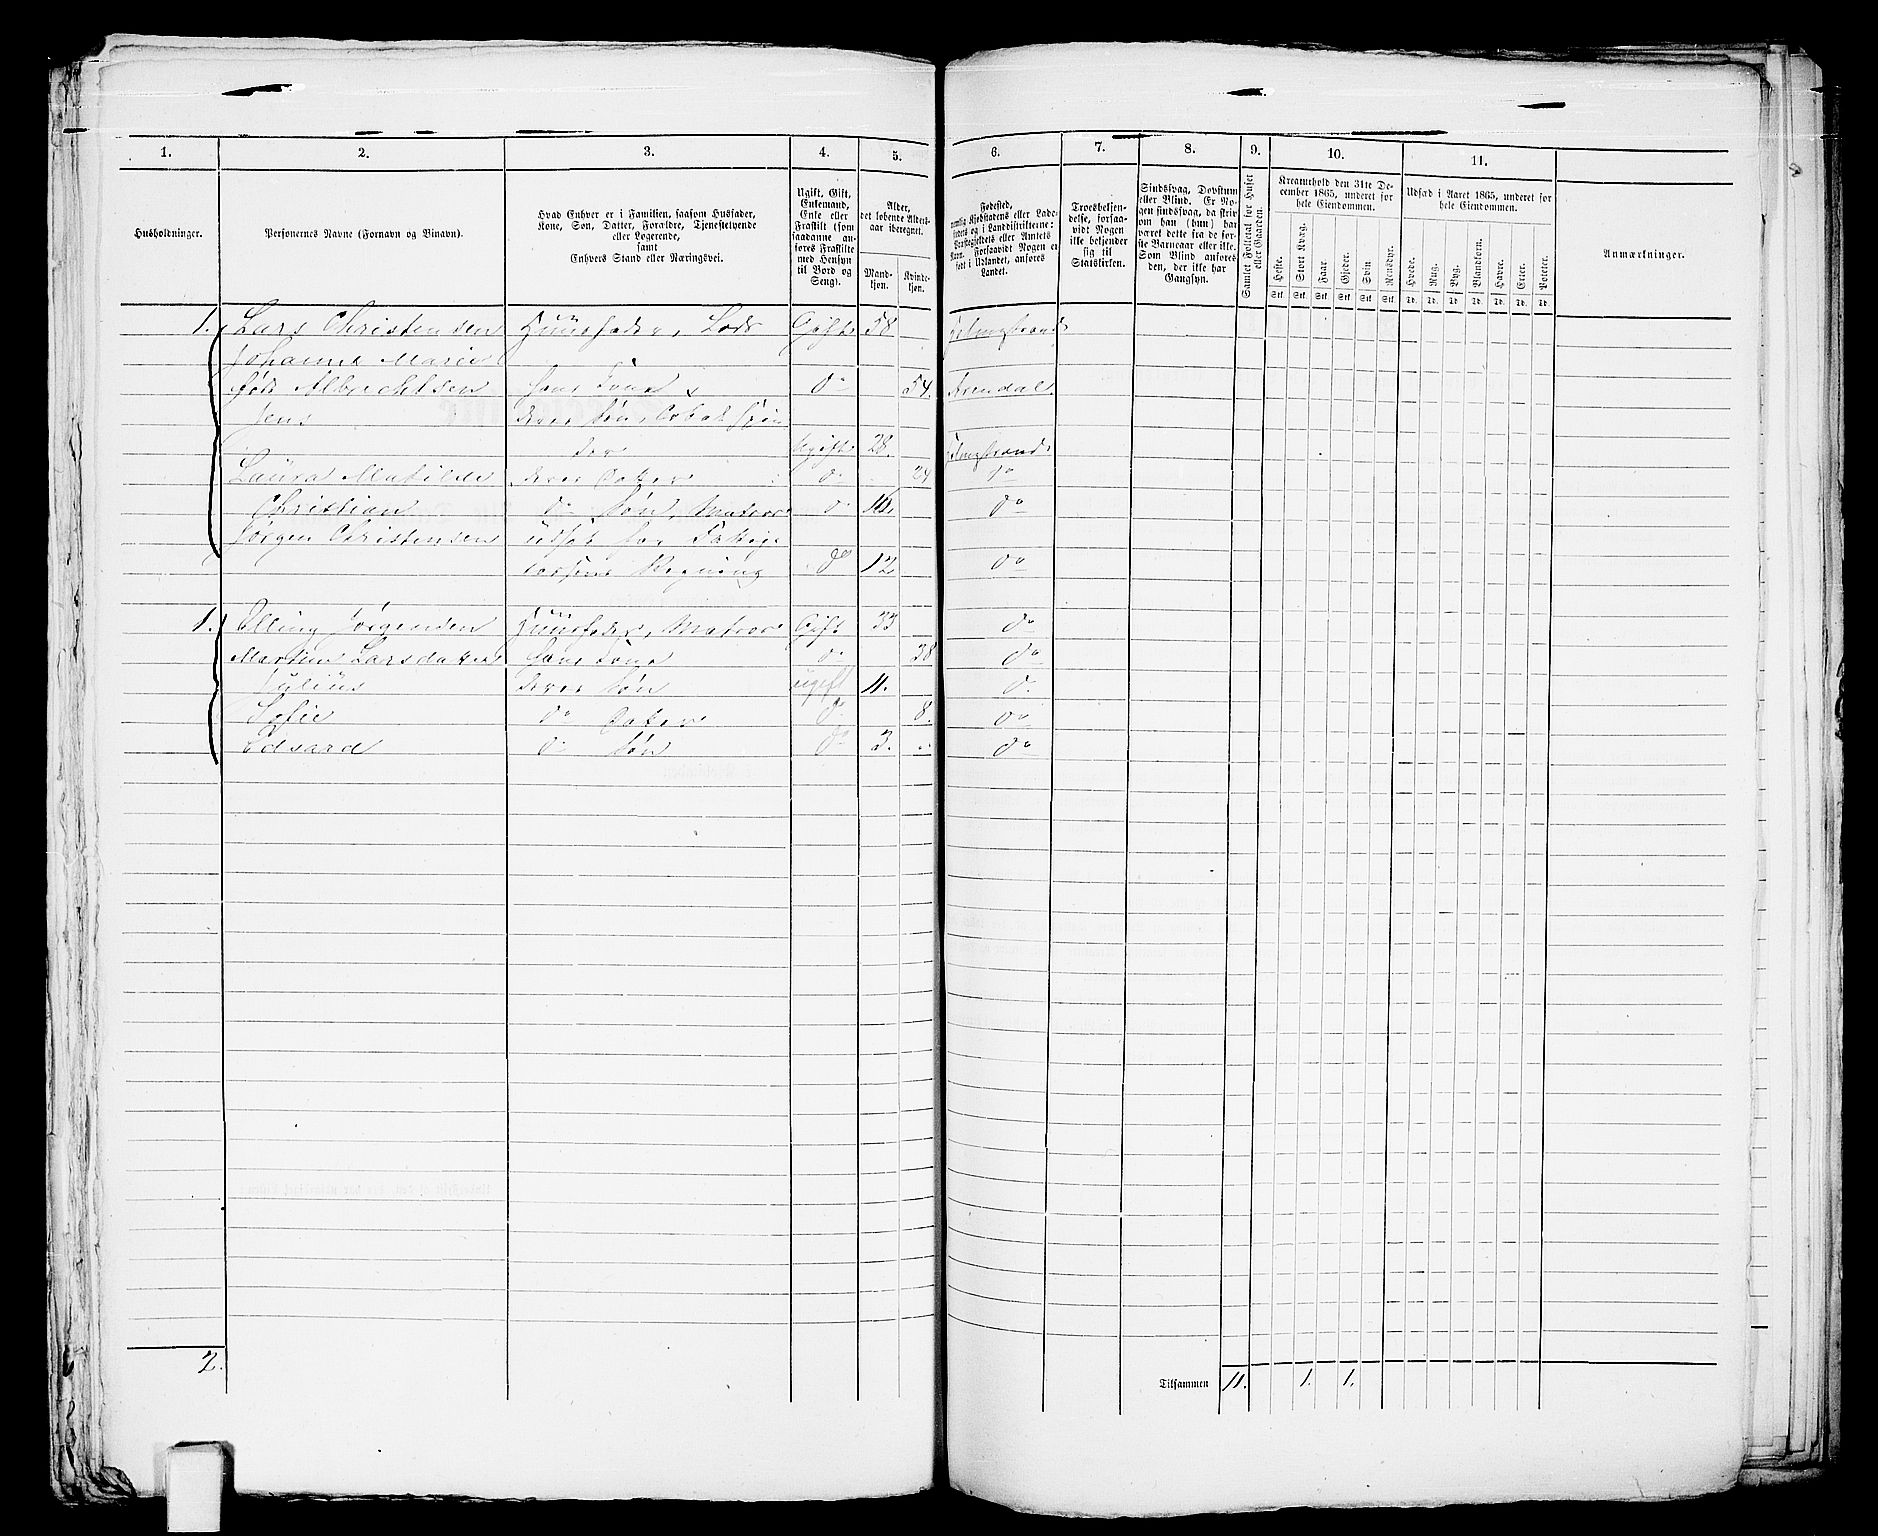 1. 2. 3. 4. 5. 6. 7. 8. 9. 10. 11.
Husholdninger.
Personernes Navne (Fornavn og Binavn).
Hvad Enhver er i Familien, saasom Husfader,
Kone, Søn, Datter, Forældre, Tjenestetyende
eller Logerende,
samt
Enhvers Stand eller Næringsvei.
Ugift, Gift,
Enkemand,
Enke eller
Fraskilt (som
saadanne an-
føres Fraskilte
med Hensyn
til Bord og
Seng).
Alder,
det løbende Alders-
aar iberegnet.
Mand-
kjøn.
Kvinde-
kjøn.
Fødested,
nemlig Kjøbstadens eller Lade-
stedets og i Landdistrikterne:
Præstegjeldets eller Amtets
Navn. Forsaavidt Nogen er
født i Udlandet, anføres
Landet.
Troesbekjen-
delse, forsaa-
vidt Nogen
ikke bekjender
sig til
Statskirken.
Sindssvag, Døvstum
eller Blind. Er No-
gen sindssvag, da skriv
om han (hun) har
været dette fra de før-
ste Barneaar eller ikke.
Som Blind anføres
den, der ikke har
Gangsyn.
Samlet Folketal for Huset
eller Gaarden.
Kreaturhold den 31te De-
cember 1865, underet for
hele Eiendommen.
Heste. Stort Kvæg. Faar. Gjeder. Svin. Rensdyr.
Stk. Stk. Stk. Stk. Stk. Stk.
Udsæd i Aaret 1865, underet for
hele Eiendommen.
Hvede. Rug. Byg. Blandkorn. Havre. Erter. Poteter.
Td. Td. Td. Td. Td. Td. Td.
Anmærkninger.
1. Lars Christensen Huusfader, Lods Gift 58
Johanne Marie
født Albrechtsen hans Kone do 54. Arendal
Jens deres Søn,
Ugift 28.
Laura Matilde deres Datter do do
Christian do Søn, Matros do do
Jørgen Christensen
do 12 do
1. Elling Jørgensen Huusfader, Matros Gift 33 do
Larsdatter hans Kone do 38 do
Julius deres Søn ugift 11. do
Sofie do Datter do 8. do
Edvard do Søn do 3. do
2. Tilsammen 11. 1. 1.